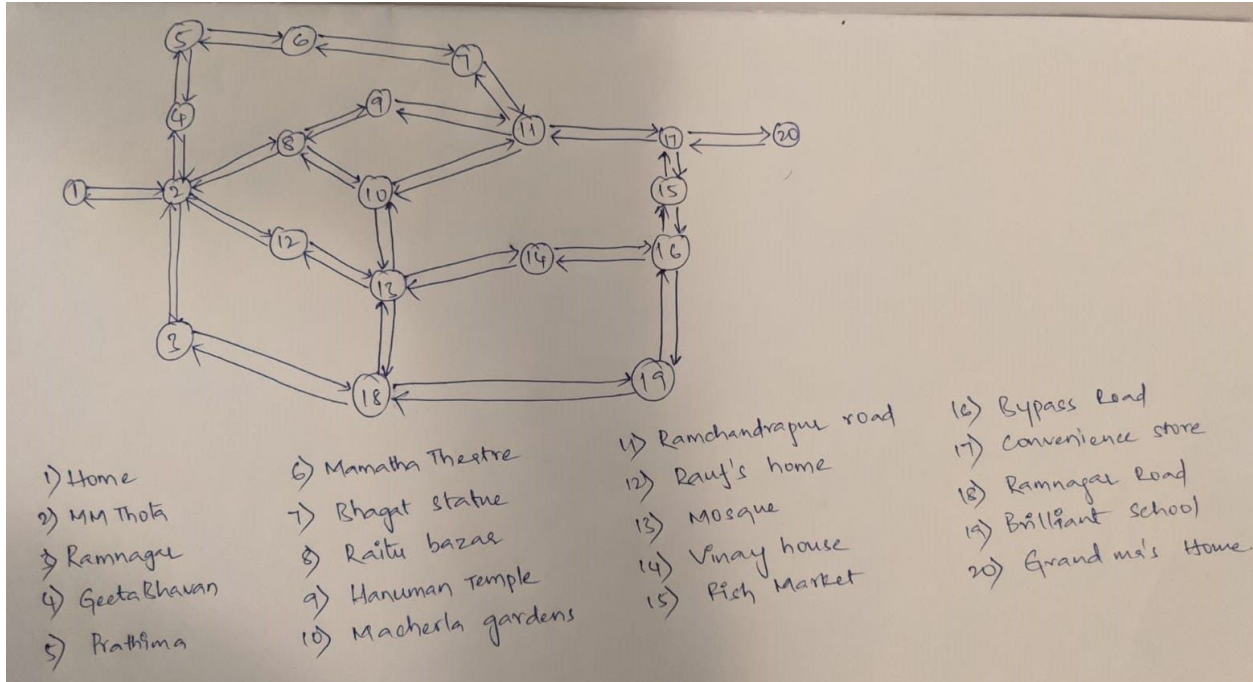 5
6
7
4
9
8
11
17
20
1
2
10
15
12
13
14
16
3
18
19
1) Home
2) MM Thota
3) Ramnagar
4) GeetaBhavan
5) Prathima
6) Mamatha Theatre
7) Bhagat statue
8) Raitu bazar
9) Hanuman Temple
10) Macherla gardens
11) Ramchandrapur road
12) Rauf's home
13) Mosque
14) Vinay house
15) Fish Market
16) Bypass Road
17) Convenience store
18) Ramnagar Road
19) Brilliant School
20) Grand ma's Home